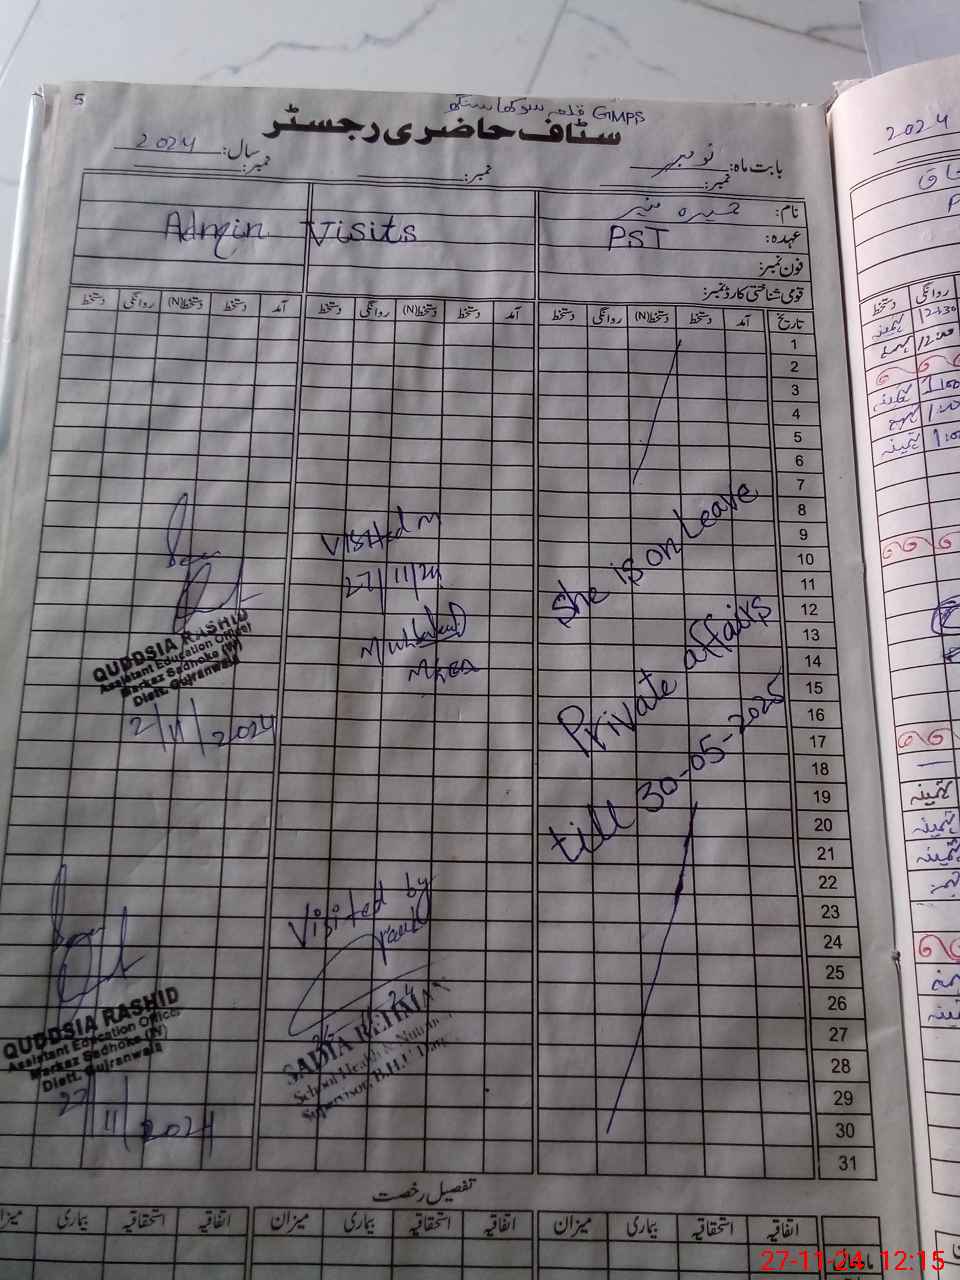 5
GMPS قلعہ سوکھا سنگھ
سٹاف حاضری رجسٹر
بابت ماہ: نومبر
سال: 2024
نمبر: نمبر: نمبر:
نام:
عہدہ: PST
Admin Visits
فون نمبر:
قومی شناختی کارڈ نمبر:
تاریخ آمد دستخط دستخط(N) روانگی دستخط آمد دستخط دستخط(N) روانگی دستخط آمد دستخط دستخط(N) روانگی دستخط
1
2
3
4
5
6
7
8
9
10
11
12
13
14
15
16
17
18
19
20
21
22
23
24
25
26
27
28
29
30
31
She is on Leave
Private affairs
till 30-05-2025
Visited on
27/11/24
MEA
Visited by
SADIA REHMAN
School Health & Nutrition
Supervisor, B.H.U
QUDDSIA RASHID
Assistant Education Officer
Markaz Sadhoke (W)
Distt. Gujranwala
2/11/2024
QUDDSIA RASHID
Assistant Education Officer
Markaz Sadhoke (W)
Distt. Gujranwala
27/11/2024
تفصیل رخصت
اتفاقیہ استحقاقیہ بیماری میزان اتفاقیہ استحقاقیہ بیماری میزان اتفاقیہ استحقاقیہ بیماری
2024
روانگی دستخط
12:30
12:00
27-11-24 12:15